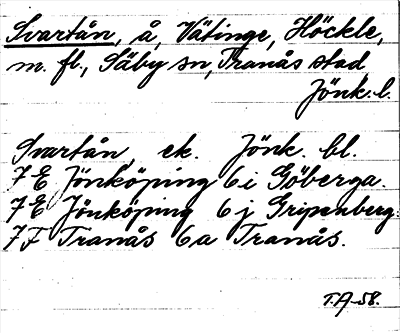 Svartån, å, Vätinge, Höckle,
m. fl., Säby sn, Tranås stad
Jönk. l.
Svartån, ek. Jönk. bl.
7 E Jönköping 6 i Göberga.
7 E Jönköping 6 j Gripenberg.
7 F Tranås 6 a Tranås.
T.A-58.